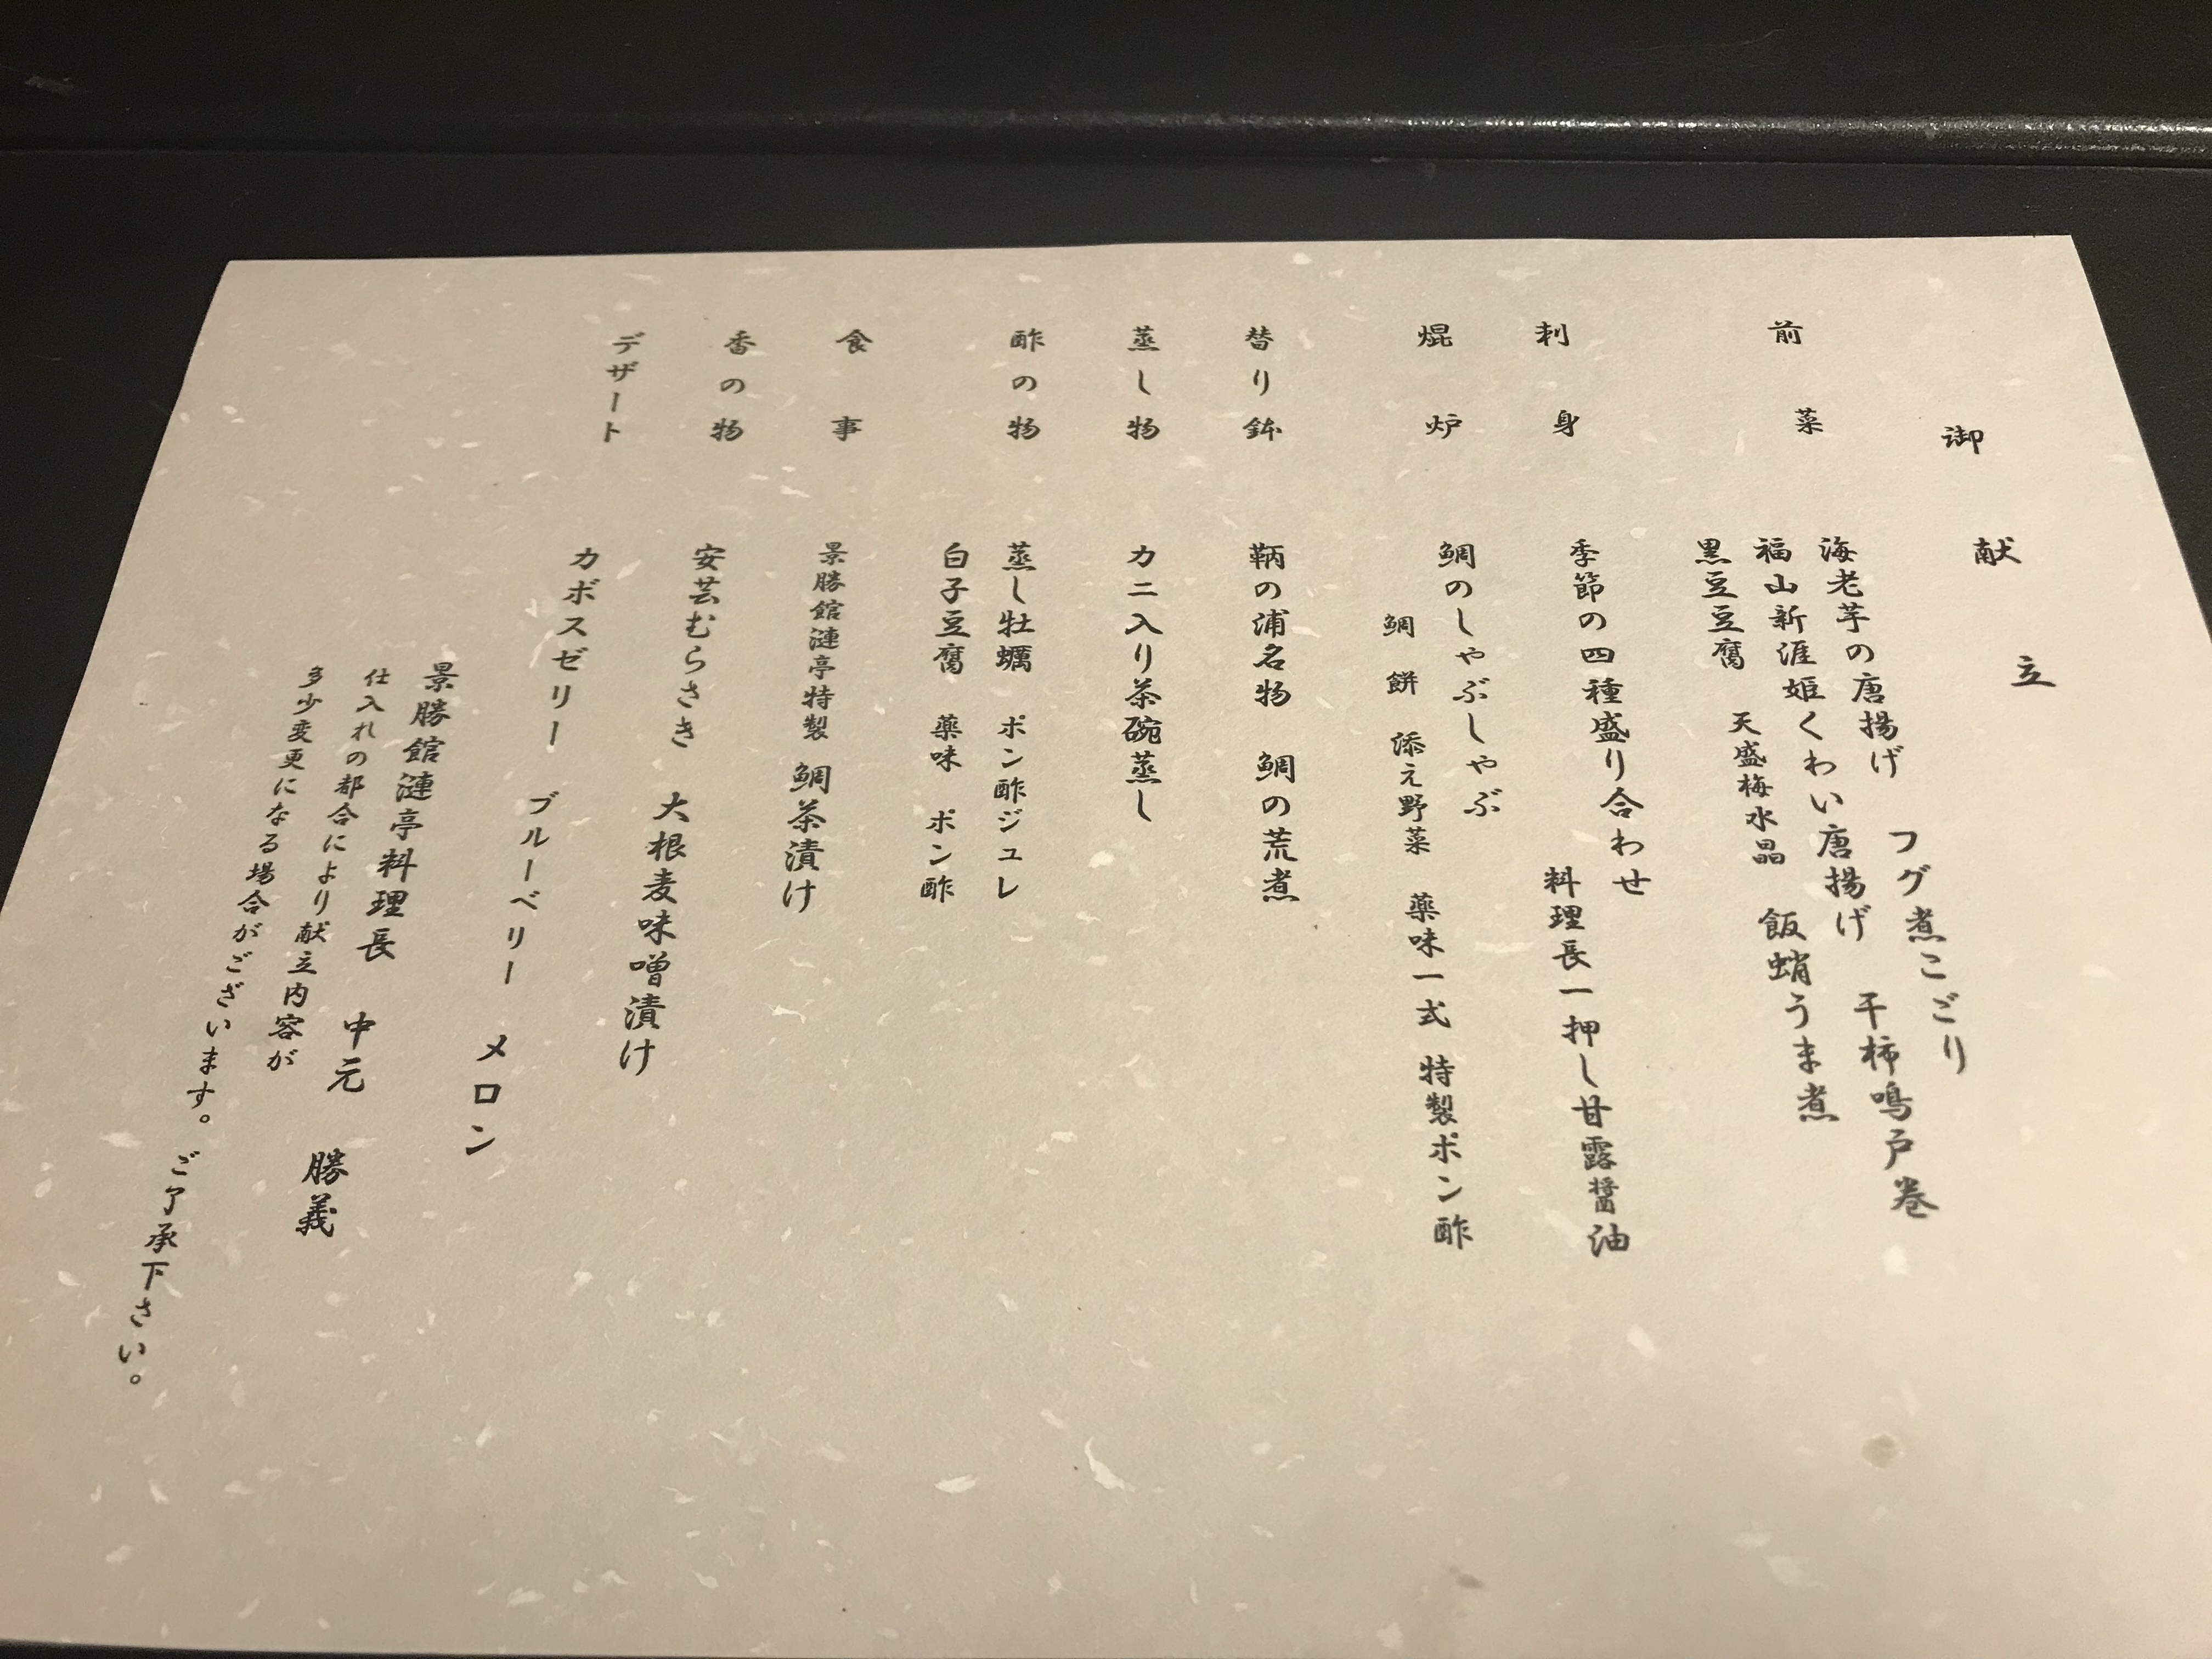 御献立
前菜
海老芋の唐揚げ フグ煮こごり
福山新涯姫くわい唐揚げ 干柿鳴戸巻
黒豆豆腐 天盛梅水晶 飯蛸うま煮
刺身
季節の四種盛り合わせ
料理長一押し甘露醤油
焜炉
鯛のしゃぶしゃぶ
鯛 餅 添え野菜 薬味一式 特製ポン酢
替り鉢
鞆の浦名物 鯛の荒煮
蒸し物
カニ入り茶碗蒸し
酢の物
蒸し牡蠣 ポン酢ジュレ
白子豆腐 薬味 ポン酢
食事
景勝館漣亭特製 鯛茶漬け
香の物
安芸むらさき 大根麦味噌漬け
デザート
カボスゼリー ブルーベリー メロン
景勝館漣亭料理長 中元 勝義
仕入れの都合により献立内容が
多少変更になる場合がございます。ご了承下さい。